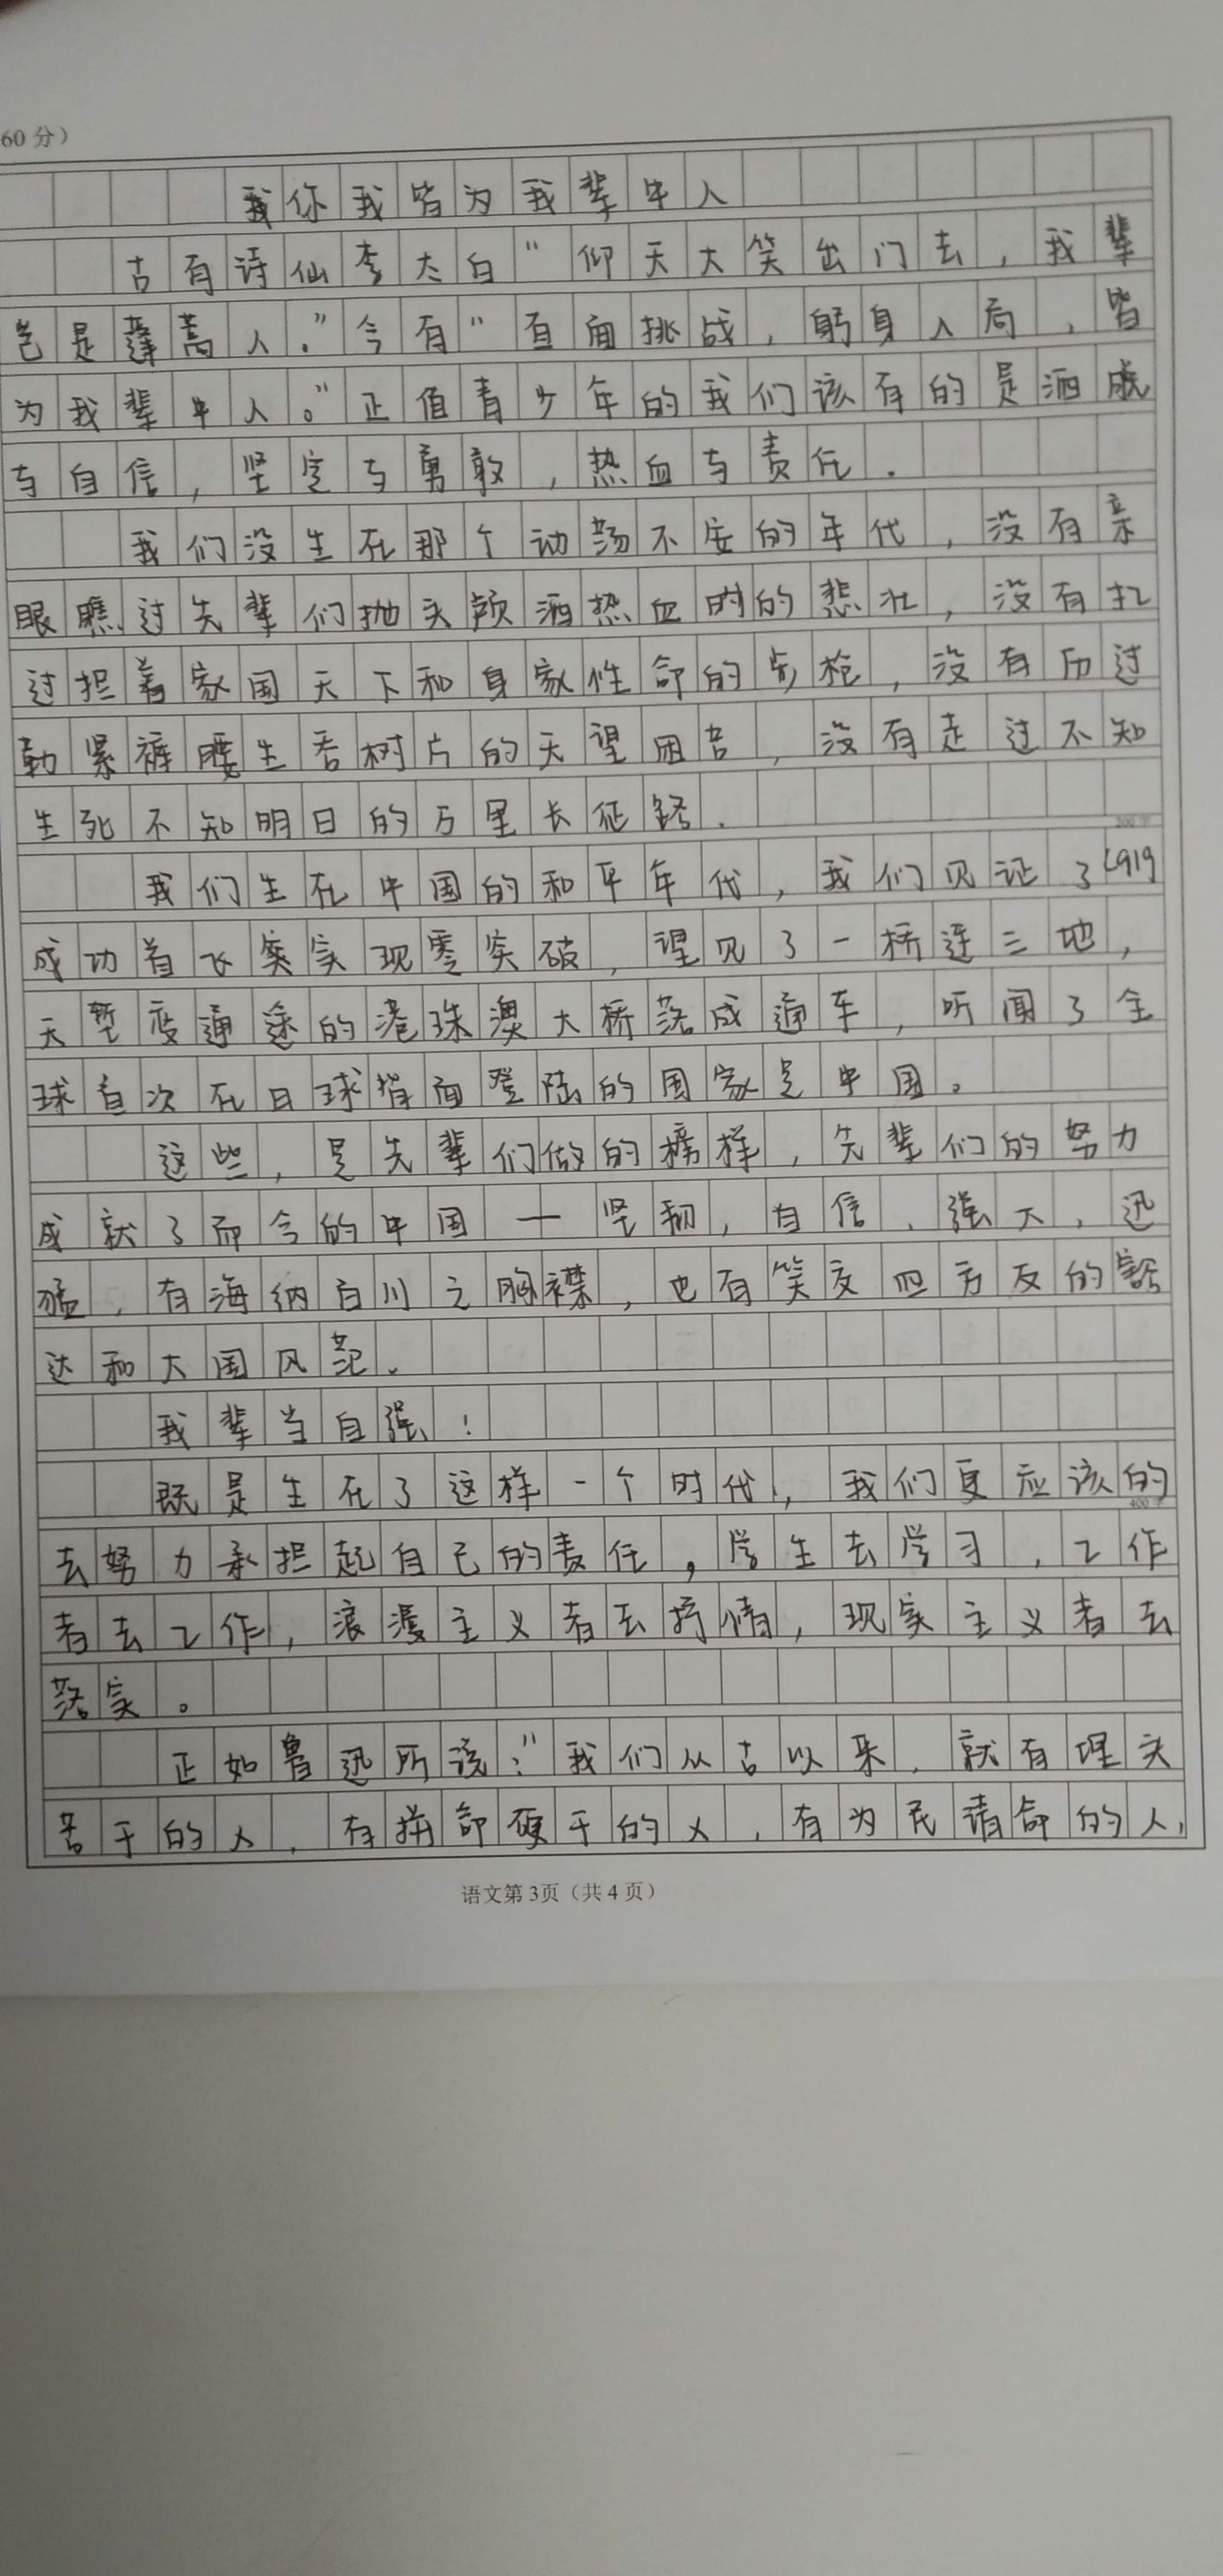 60分）
我你我皆为我辈中人
古有诗仙李太白“仰天大笑出门去，我辈
岂是蓬蒿人。”今有“直面挑战，躬身入局，皆
为我辈中人。”正值青少年的我们该有的是洒脱
与自信，坚定与勇敢，热血与责任。
我们没生在那个动荡不安的年代，没有亲
眼瞧过先辈们抛头颅洒热血时的悲壮，没有扛
过担着家国天下和身家性命的步枪，没有历过
勒紧裤腰生吞树片的天望困苦，没有走过不知
生死不知明日的万里长征路。
200字
我们生在中国的和平年代，我们见证了C919
成功首飞实现零突破，望见了一桥连三地，
天堑变通途的港珠澳大桥落成通车，听闻了全
球首次在月球背面登陆的国家是中国。
这些，是先辈们做的榜样，先辈们的努力
成就了而今的中国—坚韧，自信、强大，迅
猛，有海纳百川之胸襟，也有笑交四方友的豁
达和大国风范。
我辈当自强！
既是生在了这样一个时代，我们更应该的
400字
去努力承担起自己的责任，学生去学习，工作
者去工作，浪漫主义者去抒情，现实主义者去
落实。
正如鲁迅所说：“我们从古以来，就有埋头
苦干的人，有拼命硬干的人，有为民请命的人，
语文第3页（共4页）